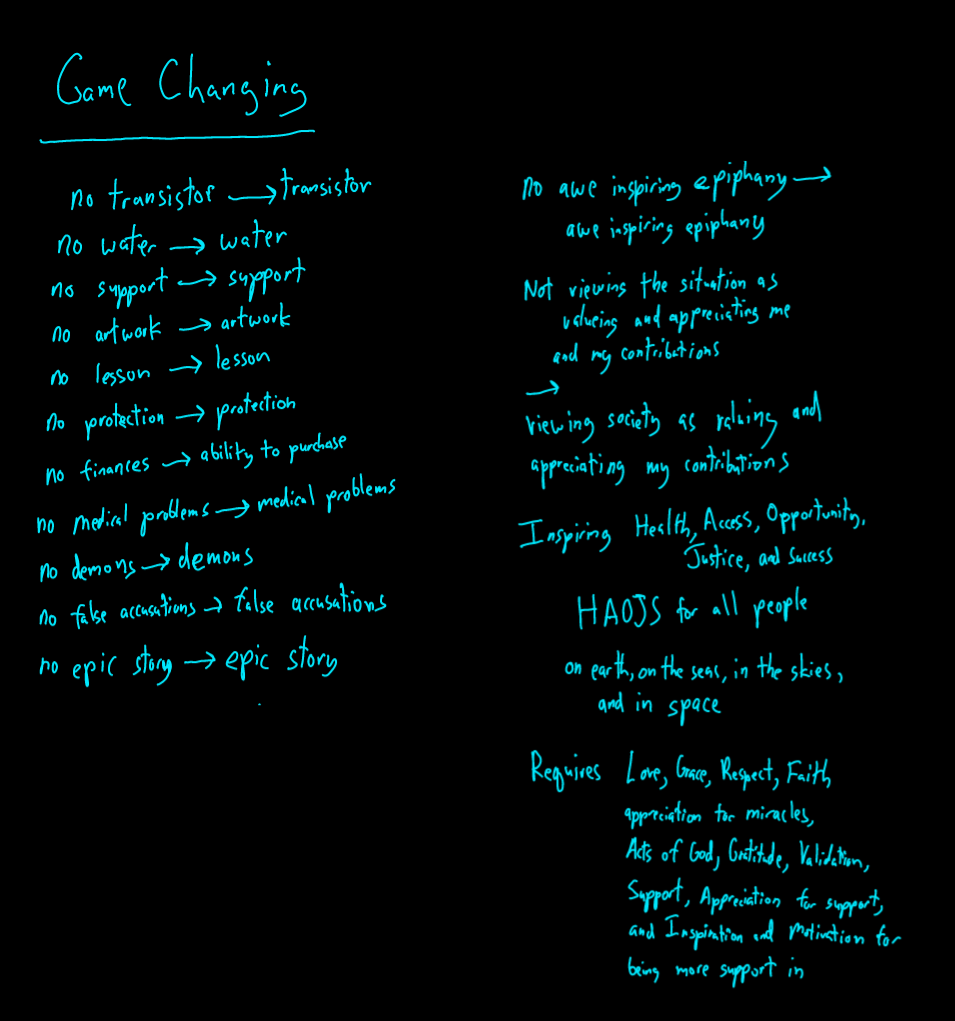 Game Changing
no transistor → transistor
no water → water
no support → support
no artwork → artwork
no lesson → lesson
no protection → protection
no finances → ability to purchase
no medical problems → medical problems
no demons → demons
no false accusations → false accusations
no epic story → epic story
no awe inspiring epiphany →
awe inspiring epiphany
Not viewing the situation as
valueing and appreciating me
and my contributions
→
viewing society as valuing and
appreciating my contributions
Inspiring Health, Access, Opportunity,
Justice, and Success
HAOJS for all people
on earth, on the seas, in the skies,
and in space
Requires Love, Grace, Respect, Faith,
appreciation for miracles,
Acts of God, Gratitude, Validation,
Support, Appreciation for support,
and Inspiration and Motivation for
being more support in